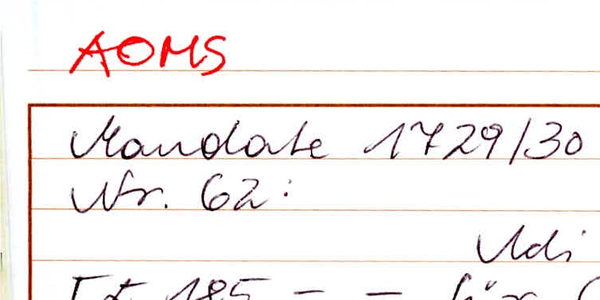 AOMS
Mandate 1729/30
Nr. 62:
185 - - für